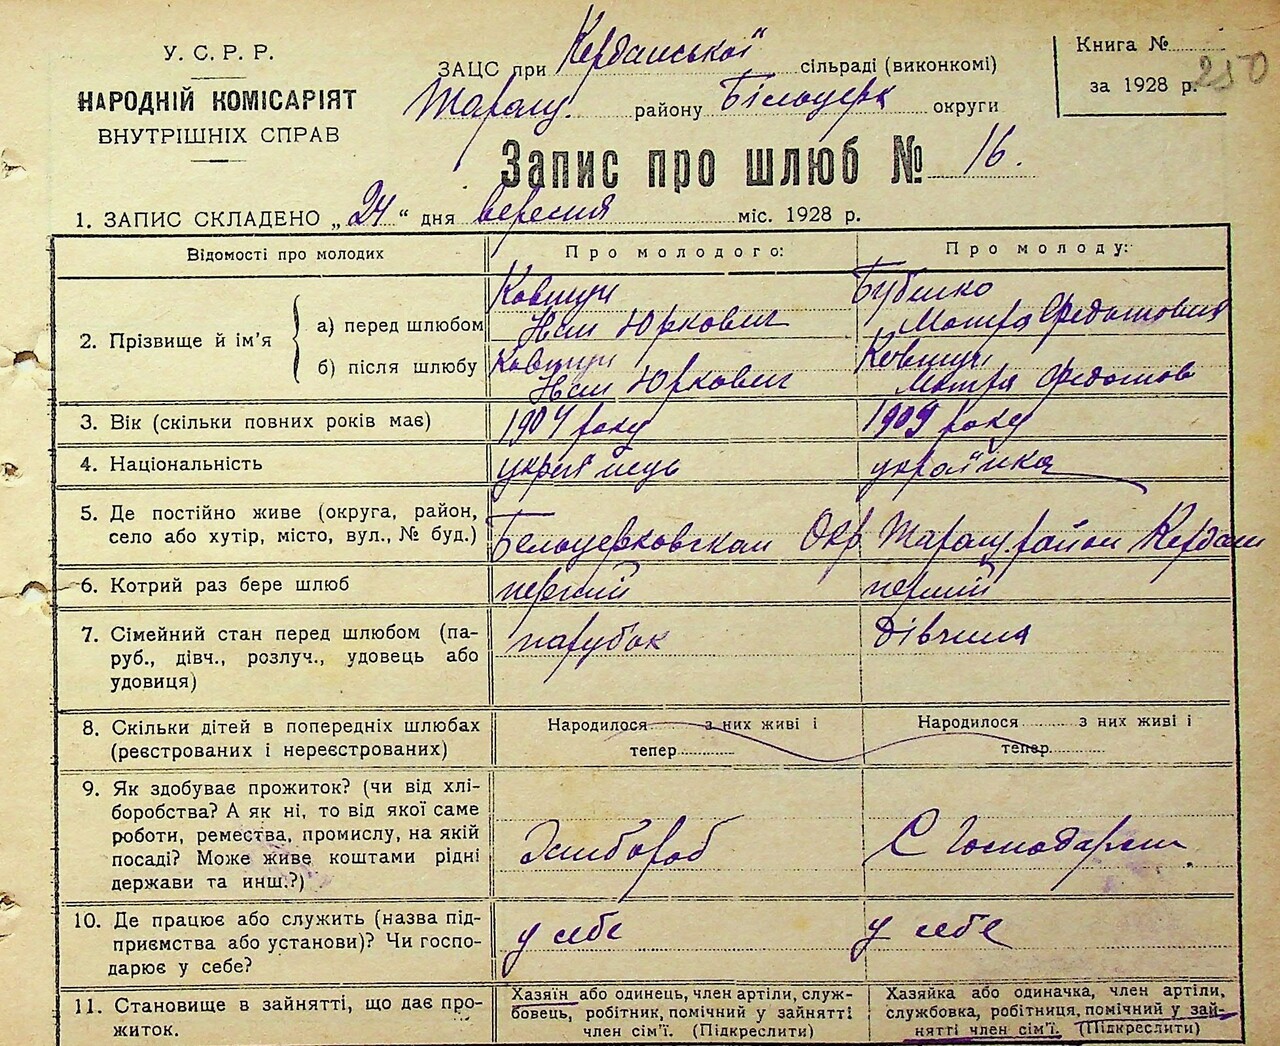 У. С. Р. Р.
НАРОДНІЙ КОМІСАРІЯТ
ВНУТРІШНІХ СПРАВ
ЗАЦС при Керданської сільраді (виконкомі)
Таращ. району Білоцерк округи
Книга №
за 1928 р.
250
Запис про шлюб № 16.
1. ЗАПИС СКЛАДЕНО „24“ дня вересня міс. 1928 р.
Відомості про молодих
Про молодого:
Про молоду:
2. Прізвище й ім’я
а) перед шлюбом
Ковтун
Юркович
Бубенко
Мотря Федотовна
б) після шлюбу
Ковтун
Юркович
Ковтун
Мотря Федотов
3. Вік (скільки повних років має)
1904 року
1909 року
4. Національність
українець
українка
5. Де постійно живе (округа, район,
село або хутір, місто, вул., № буд.)
Белоцерковская Окр Таращ. район Кердани
6. Котрий раз бере шлюб
перший
перший
7. Сімейний стан перед шлюбом (па-
руб., дівч., розлуч., удовець або
удовиця)
парубок
дівчина
8. Скільки дітей в попередніх шлюбах
(реєстрованих і нереєстрованих)
Народилося з них живі і
тепер
Народилося з них живі і
тепер
9. Як здобуває прожиток? (чи від хлі-
боробства? А як ні, то від якої саме
роботи, ремества, промислу, на якій
посаді? Може живе коштами рідні
держави та инш.?)
хлібороб
10. Де працює або служить (назва під-
приємства або установи)? Чи госпо-
дарює у себе?
у себе
у себе
11. Становище в зайнятті, що дає про-
житок.
Хазяїн або одинець, член артіли, служ-
бовець, робітник, помічний у зайнятті
член сім’ї. (Підкреслити)
Хазяйка або одиначка, член артіли,
службовка, робітниця, помічний у зай-
нятті член сім’ї. (Підкреслити)